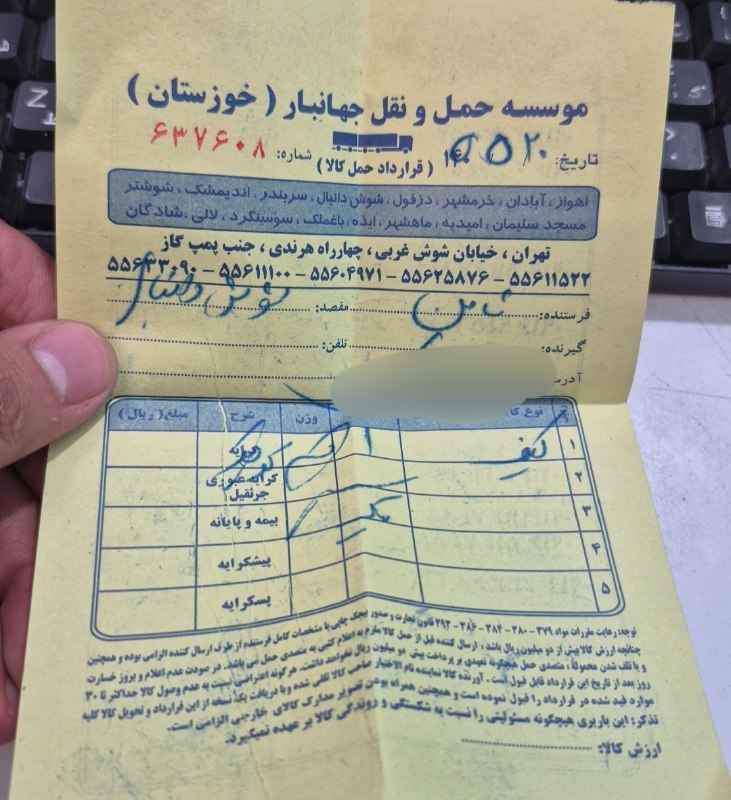 موسسه حمل و نقل جهانبار ( خوزستان )
تاریخ: ۲۰ ۵
( قرارداد حمل کالا ) شماره: ۶۳۷۶۰۸
اهواز ، آبادان ، خرمشهر ، دزفول ، شوش دانیال ، سربندر ، اندیمشک ، شوشتر
مسجد سلیمان ، امیدیه ، ماهشهر ، ایذه ، باغملک ، سوسنگرد ، لالی ، شادگان
تهران ، خیابان شوش غربی ، چهارراه هرندی ، جنب پمپ گاز
۵۵۶۱۱۵۲۲ – ۵۵۶۲۵۸۷۶ – ۵۵۶۰۴۹۷۱ – ۵۵۶۱۱۱۰۰ – ۵۵۶۴۳۰۹۰
فرستنده: ثامن مقصد: شوش دانیال
گیرنده: تلفن:
آدرس
نوع کا وزن شرح مبلغ( ریال )
۱ کیف کرایه
۲ کرایه عبوری
جرثقیل
۳ بیمه و پایانه
۴ پیشکرایه
۵ پسکرایه
توجه: رعایت مقررات مواد ۳۷۹ – ۳۸۰ – ۳۸۴ – ۳۸۶ – ۳۹۳ قانون تجارت و صدور بیجک چاپی با مشخصات کامل فرستنده از طرف ارسال کننده الزامی بوده و همچنین
چنانچه ارزش کالا بیش از دو میلیون ریال باشد ، ارسال کننده قبل از حمل کالا ملزم به اعلام کتبی به متصدی حمل می باشد. در صورت عدم اعلام و بروز خسارت
و یا تلف شدن محموله، متصدی حمل هیچگونه تعهدی بر پرداخت بیش دو میلیون ریال نخواهد داشت. هرگونه اعتراضی نسبت به عدم وصول کالا حداکثر تا ۳۰
روز بعد از تاریخ این قرارداد قابل قبول است . آورنده کالا نماینده تام الاختیار صاحب کالا تلقی شده و با دریافت یک نسخه از این قرارداد و تحویل کالا کلیه
موارد قید شده در قرارداد را قبول نموده است و همچنین همراه بودن تصویر مدارک کالای خارجی الزامی است.
تذکر: این باربری هیچگونه مسئولیتی را نسبت به شکستگی و روندگی کالا بر عهده نمیگیرد.
ارزش کالا: